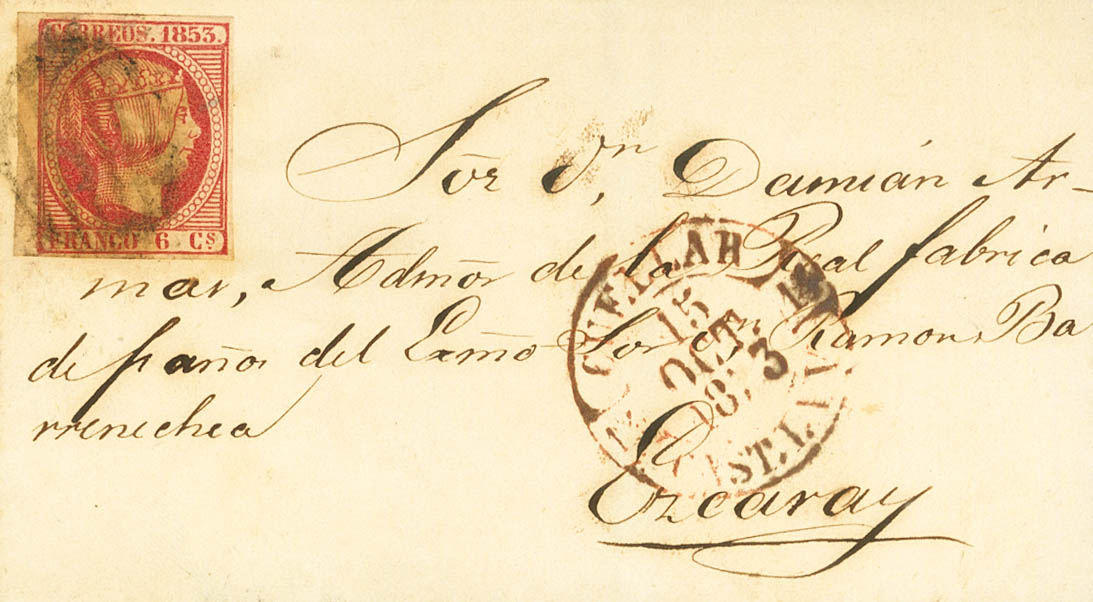 CORREOS. 1853.
FRANCO 6 Cs
Sōr dn, Damián Ar-
mar, Admōr de la Real fabrica
de paños del Exmō Sor dn, Ramon Ba
rrenechea
Ezcaray
CUELLAR
15
OCT.
1853
CAST. LA V.